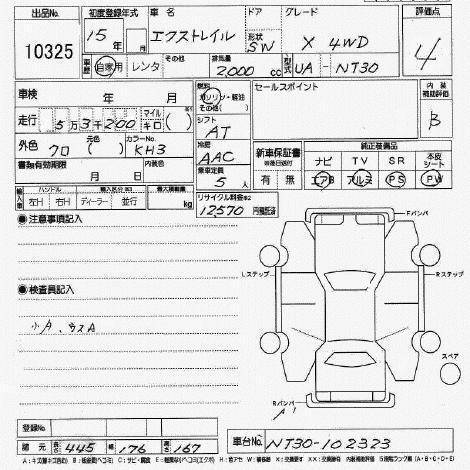 出品No. 初度登録年式 車名 ドア グレード 評価点
10325 15年 エクストレイル 形状 SW X 4WD 4
車歴 自家用 レンタ その他 排気量 2000 cc 型式 UA - NT30
車検 年 月 燃料 ガソリン・軽油 その他( ) セールスポイント 内装補助評価 B
走行 5万3千200 マイル キロ ( ) シフト AT
外色 クロ 元色 ( ) カラーNo. KH3 冷房 AAC 新車保証書 純正装備品
ナビ TV SR 本皮シート
書類有効期限 月 日 内装色 乗車定員 5人 有 無 エアB アルミ PS PW
輸入車 ハンドル 輸入区分 最大積載量 リサイクル料金
左H 右H ディーラー 並行 kg 12570 円預託済
●注意事項記入
Fバンパ
Lステップ Rステップ
●検査員記入
小A、
スペア
Rバンパ
A1
登録No.
諸元 長さ 445 幅 176 高さ 167 車台No. NT30-102323